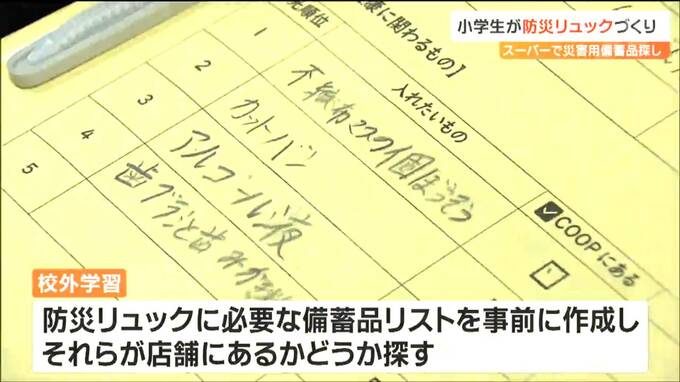 小学生が防災リュックづくり
スーパーで災害用備蓄品探し
先順位
康に関わるもの】
入れたいもの
COOPにある
1
不織布マスク個ほうそう
2
カットバン
3
アルコール液
4
歯ブラシと歯みがき
5
校外学習
防災リュックに必要な備蓄品リストを事前に作成し
それらが店舗にあるかどうか探す